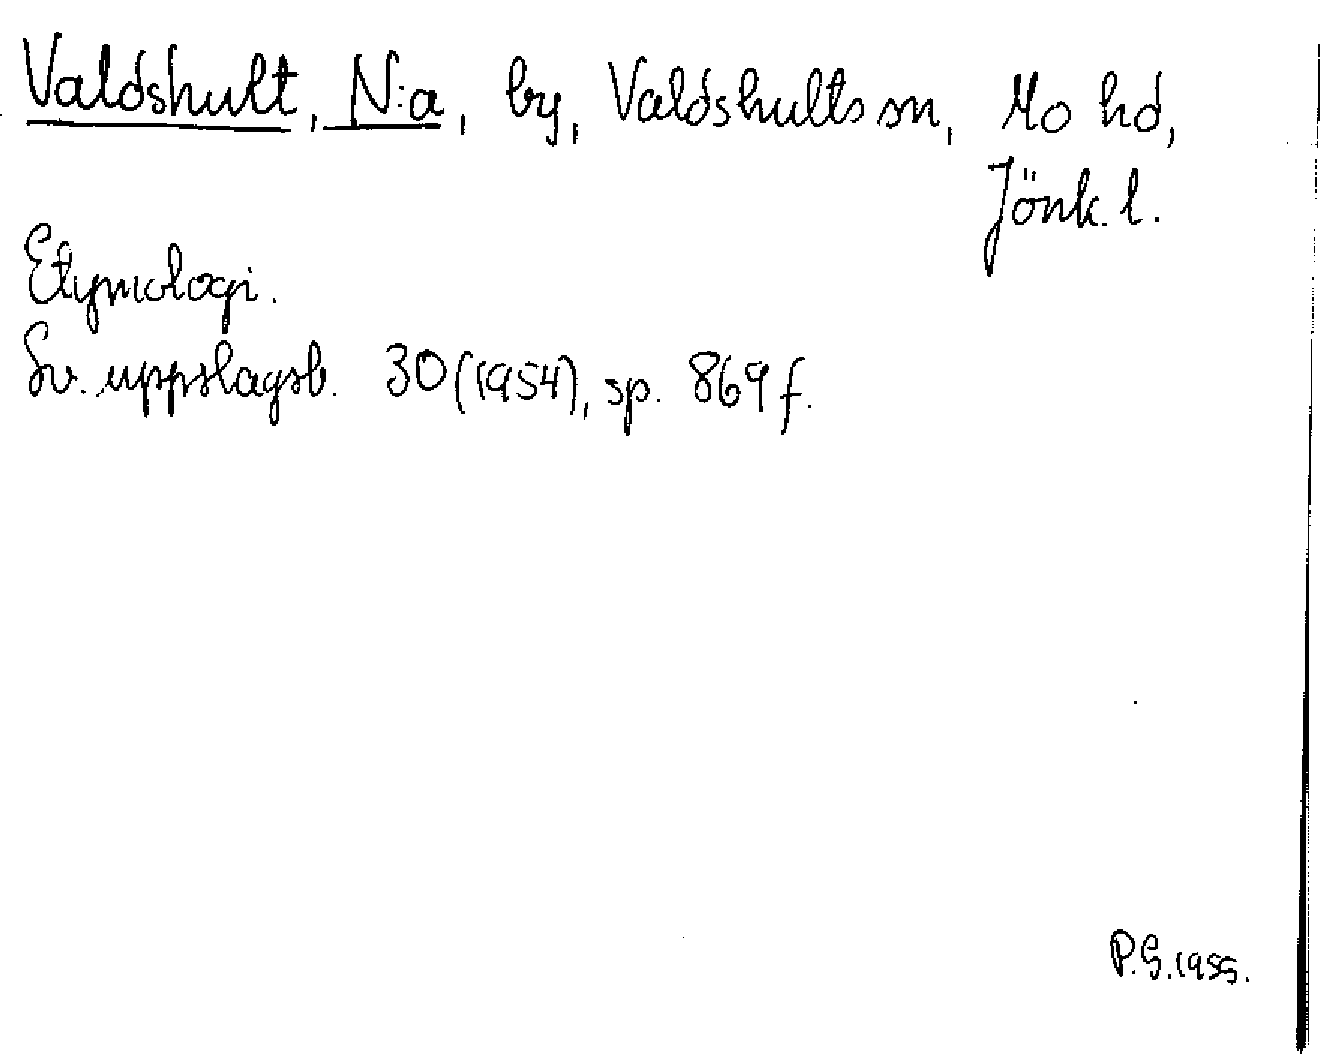 Valdshult, N:a, by, Valdshults sn, Mo hd,
Jönk. l.
Etymologi.
Sv. uppslagsb. 30 (1954), sp. 869 f.
P.G. 1955.